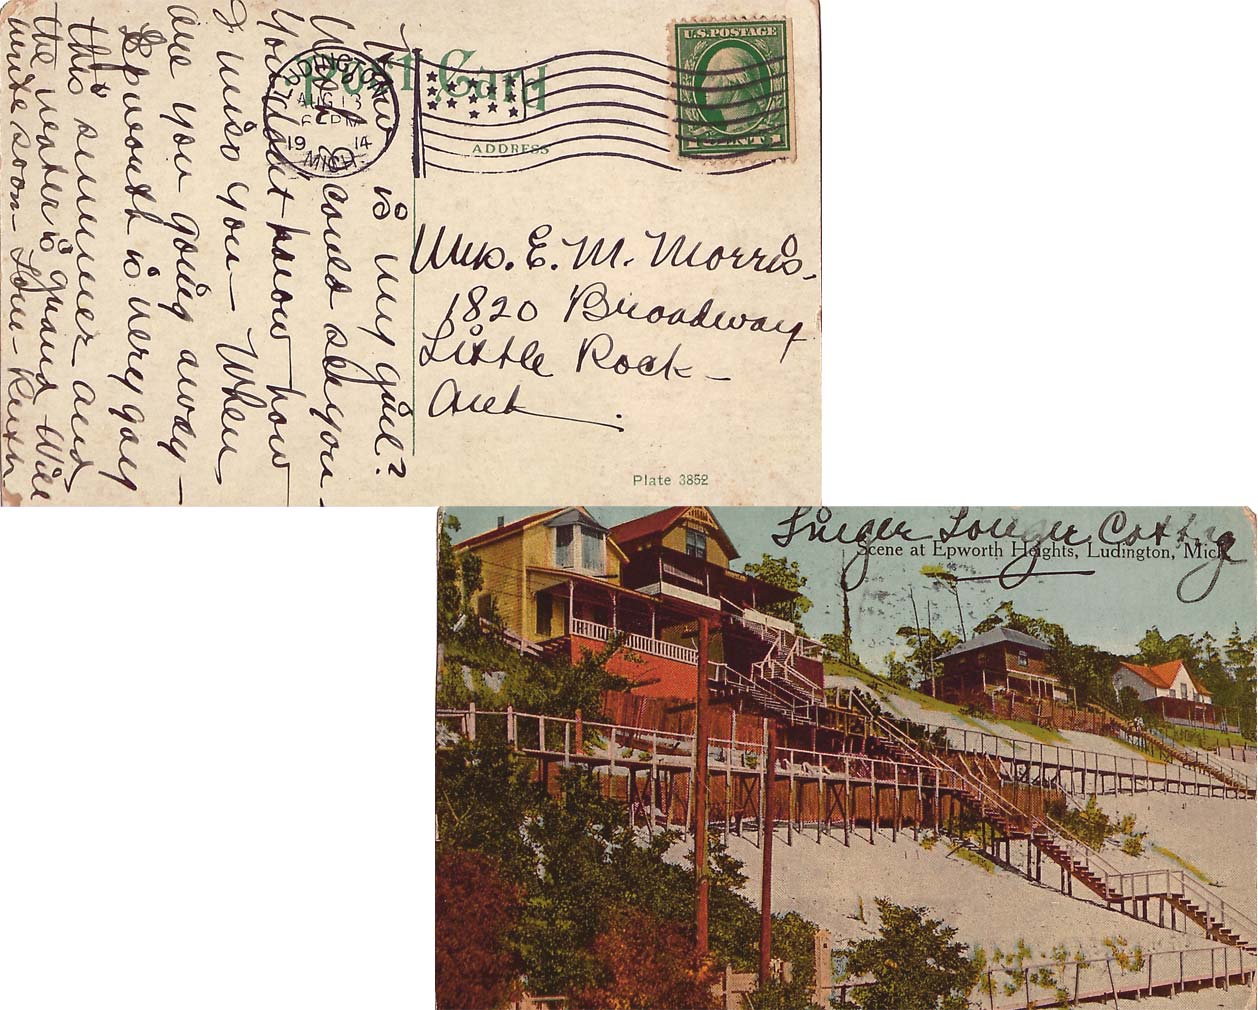 Post Card
ADDRESS
U.S. POSTAGE
1 CENT 1
LUDINGTON
AUG 13
PM
19 14
MICH.
How is my girl?
Wish I could see you –
You don't know how
I miss you – When
are you going away –
Epworth is very gay
this summer – and
the water is grand – Will
write soon – Love – Ruth
Mrs. E. M. Morris.
1820 Broadway
Little Rock –
Ark.
Plate 3852
Linger Longer Cottg
Scene at Epworth Heights, Ludington, Mich.